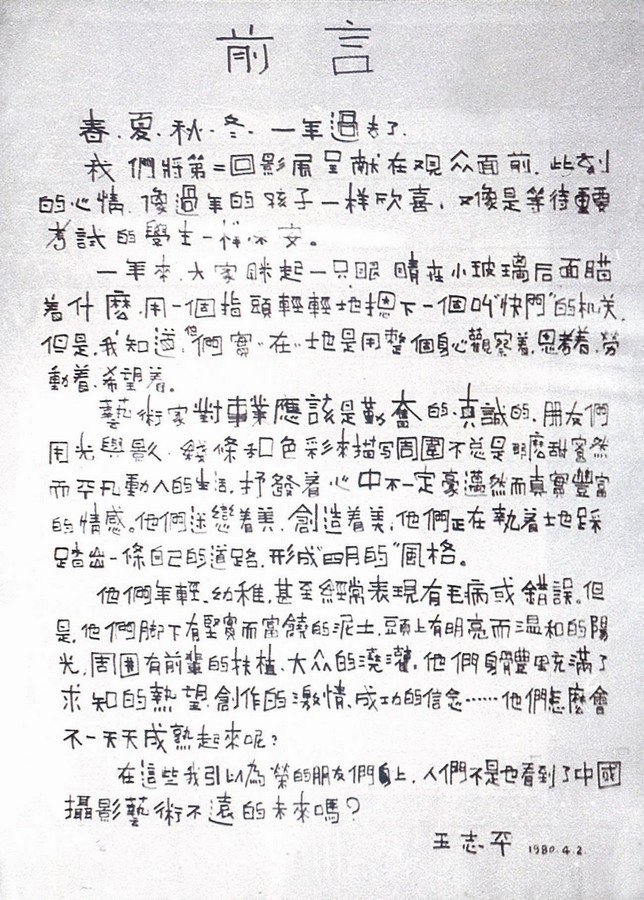 前言
春.夏.秋.冬.一年過去了.
我們將第二回影展呈献在观众面前.此刻
的心情.像過年的孩子一样欣喜.又像是等待重要
考試的學生一样不安。
一年來.大家眯起一只眼睛在小玻璃后面瞄
着什麽.用一個指頭輕輕地摁下一個叫“快門”的机关.
但是.我知道.他們實在地是用整個身心觀察着.思考着.勞
動着.希望着。
藝術家對事業應該是勤奮的.真誠的.朋友們
用光與影.綫條和色彩來描写周圍不总是那麽甜蜜然
而平凡動人的生活.抒發着心中不一定豪邁然而真實豐富
的情感。他們迷戀着美.創造着美.他們正在執着地踩
踏出一條自己的道路.形成“四月的”風格。
他們年輕.幼稚.甚至經常表現有毛病或錯誤。但
是.他們脚下有堅實而富饒的泥土.頭上有明亮而溫和的陽
光.周圍有前輩的扶植、大众的澆灌.他們身體里充滿了
求知的熱望.創作的激情、成功的信念……他們怎麽會
不一天天成熟起來呢？
在這些我引以為榮的朋友們身上.人們不是也看到了中國
攝影藝術不遠的未來嗎？
王志平 1980.4.2.